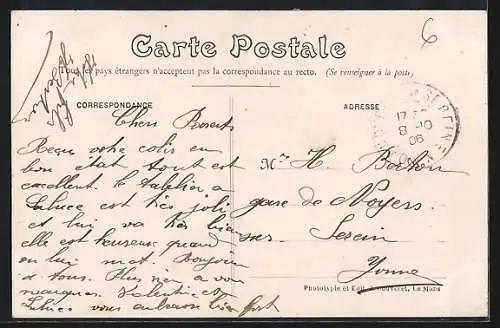 Carte Postale
Tous les pays étrangers n'acceptent pas la correspondance au recto. (Se renseigner à la poste)
CORRESPONDANCE
ADRESSE
Chers
Reçu votre colis en
bon état tout est
excellent. le tablier a
est très joli
et lui va très bien
elle est heureuse quand
on lui met. Bonjour
a tous. Plus rien a vous
marquer. Valentine et
vous embrasse bien fort
Mr H.
gare de Noyers
sur Serein
Yonne
Phototypie et Edit. Le Mans
6